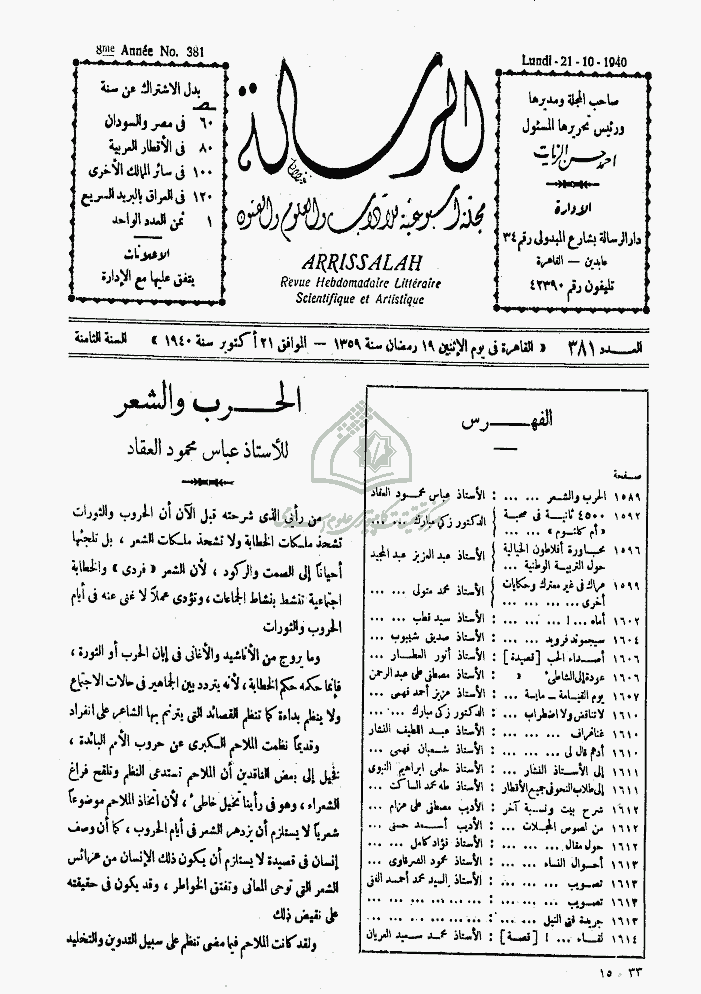 8me Année No. 381
Lundi - 21 - 10 - 1940
صاحب المجلة ومديرها
ورئيس تحريرها المسئول
احمد حسن الزيات
الإدارة
دار الرسالة بشارع المبدولى رقم ٣٤
عابدين — القاهرة
تليفون رقم ٤٢٣٩٠
الرسالة
مجلة أسبوعية للآداب والعلوم والفنون
ARRISSALAH
Revue Hebdomadaire Littéraire
Scientifique et Artistique
بدل الاشتراك عن سنة
٦٠ فى مصر والسودان
٨٠ فى الأقطار العربية
١٠٠ فى سائر الممالك الأخرى
١٢٠ فى العراق بالبريد السريع
١ ثمن العدد الواحد
الإعلانات
يتفق عليها مع الإدارة
العـــدد ٣٨١ « القاهرة فى يوم الإثنين ١٩ رمضان سنة ١٣٥٩ — الموافق ٢١ أكتوبر سنة ١٩٤٠ » السنة الثامنة
الفهـــرس
صفحة
١٥٨٩ الحرب والشعر ... ... : الأستاذ عباس محمود العقاد
١٥٩٢ ٤٥٠٠ ثانية فى صحبة « أم كلثوم » ... ... : الدكتور زكى مبارك ... ...
١٥٩٦ محاورة أفلاطون الخيالية حول التربية الوطنية ... : الأستاذ عبد العزيز عبد المجيد
١٥٩٩ عراك فى غير معترك وحكايات أخرى ... ... ... ... : الأستاذ محمد متولى ... ...
١٦٠٢ أماه ... ! ... ... ... : الأستاذ سيد قطب ... ...
١٦٠٤ سيجموند فرويد ... ... : الأستاذ صديق شيبوب ...
١٦٠٦ أصداء الحب [ قصيدة ] : الأستاذ أنور العطار ... ...
١٦٠٦ عودة إلى الشاطىء « : الأستاذ مصطفى على عبد الرحمن
١٦٠٧ يوم القيامة ـ مايسة ... : الأستاذ عزيز أحمد فهمى ...
١٦١٠ لا تناقض ولا اضطراب ... : الدكتور زكى مبارك ... ...
١٦١٠ ... ... ... : الأستاذ عبد اللطيف النشار
١٦١٠ أدهم قال لى ... ... ... : الأستاذ شعبان فهمى ...
١٦١١ إلى الأستاذ النشار ... : الأستاذ حلمى ابراهيم النبوى
١٦١١ إلى طلاب النحو فى جميع الأقطار : الأستاذ طه محمد الساكت ...
١٦١٢ شرح بيت ونسبة آخر : الأديب مصطفى على هزام ...
١٦١٢ من لصوص المجلات ... : الأديب أسعد حسنى ...
١٦١٢ حول مقال ... ... ... : الأستاذ فؤاد كامل ... ...
١٦١٣ أحوال النساء ... ... : الأستاذ محمود الشرقاوى ...
١٦١٣ تصويب ... ... ... : الأستاذ السيد محمد أحمد الفى
١٦١٣ تصويب ... ... ... : ... ... ... ...
١٦١٣ جريمة فى النيل ... ... : ... ... ... ...
١٦١٤ لقاء ... ! [ قصة ] : الأستاذ محمد سعيد العريان
الحـــرب والشعر
للأستاذ عباس محمود العقاد
من رأيى الذى شرحته قبل الآن أن الحروب والثورات
تشحذ ملكات الخطابة ولا تشحذ ملكات الشعر ، بل تلجئها
أحياناً إلى الصمت والركود ، لأن الشعر « فردى » والخطابة
اجتماعية تنشط بنشاط الجماعات ، وتؤدى عملاً لا غنى عنه فى أيام
الحروب والثورات
وما يروج من الأناشيد والأغانى فى إبان الحرب أو الثورة ،
فإنما حكمه حكم الخطابة ، لأنه يتردد بين الجماهير فى حالات الاجتماع
ولا ينظم بداءة كما تنظم القصائد التى يترنم بها الشاعر على انفراد
وقديماً نظمت الملاحم الكبرى عن حروب الأمم البائدة ،
فخيل إلى بعض الناقدين أن الملاحم تستدعى النظم وتلقح فراغ
الشعراء ، وهو فى رأينا تخيل خاطىء ، لأن اتخاذ الملاحم موضوعاً
شعرياً لا يستلزم أن يزدهر الشعر فى أيام الحروب ، كما أن وصف
إنسان فى قصيدة لا يستلزم أن يكون ذلك الإنسان من عرائس
الشعر التى توحى المعانى وتفتق الخواطر ، وقد يكون فى حقيقته
على نقيض ذلك
ولقد كانت الملاحم فيما مضى تنظم على سبيل التدوين والتخليد
٣٣ ـ ١٥